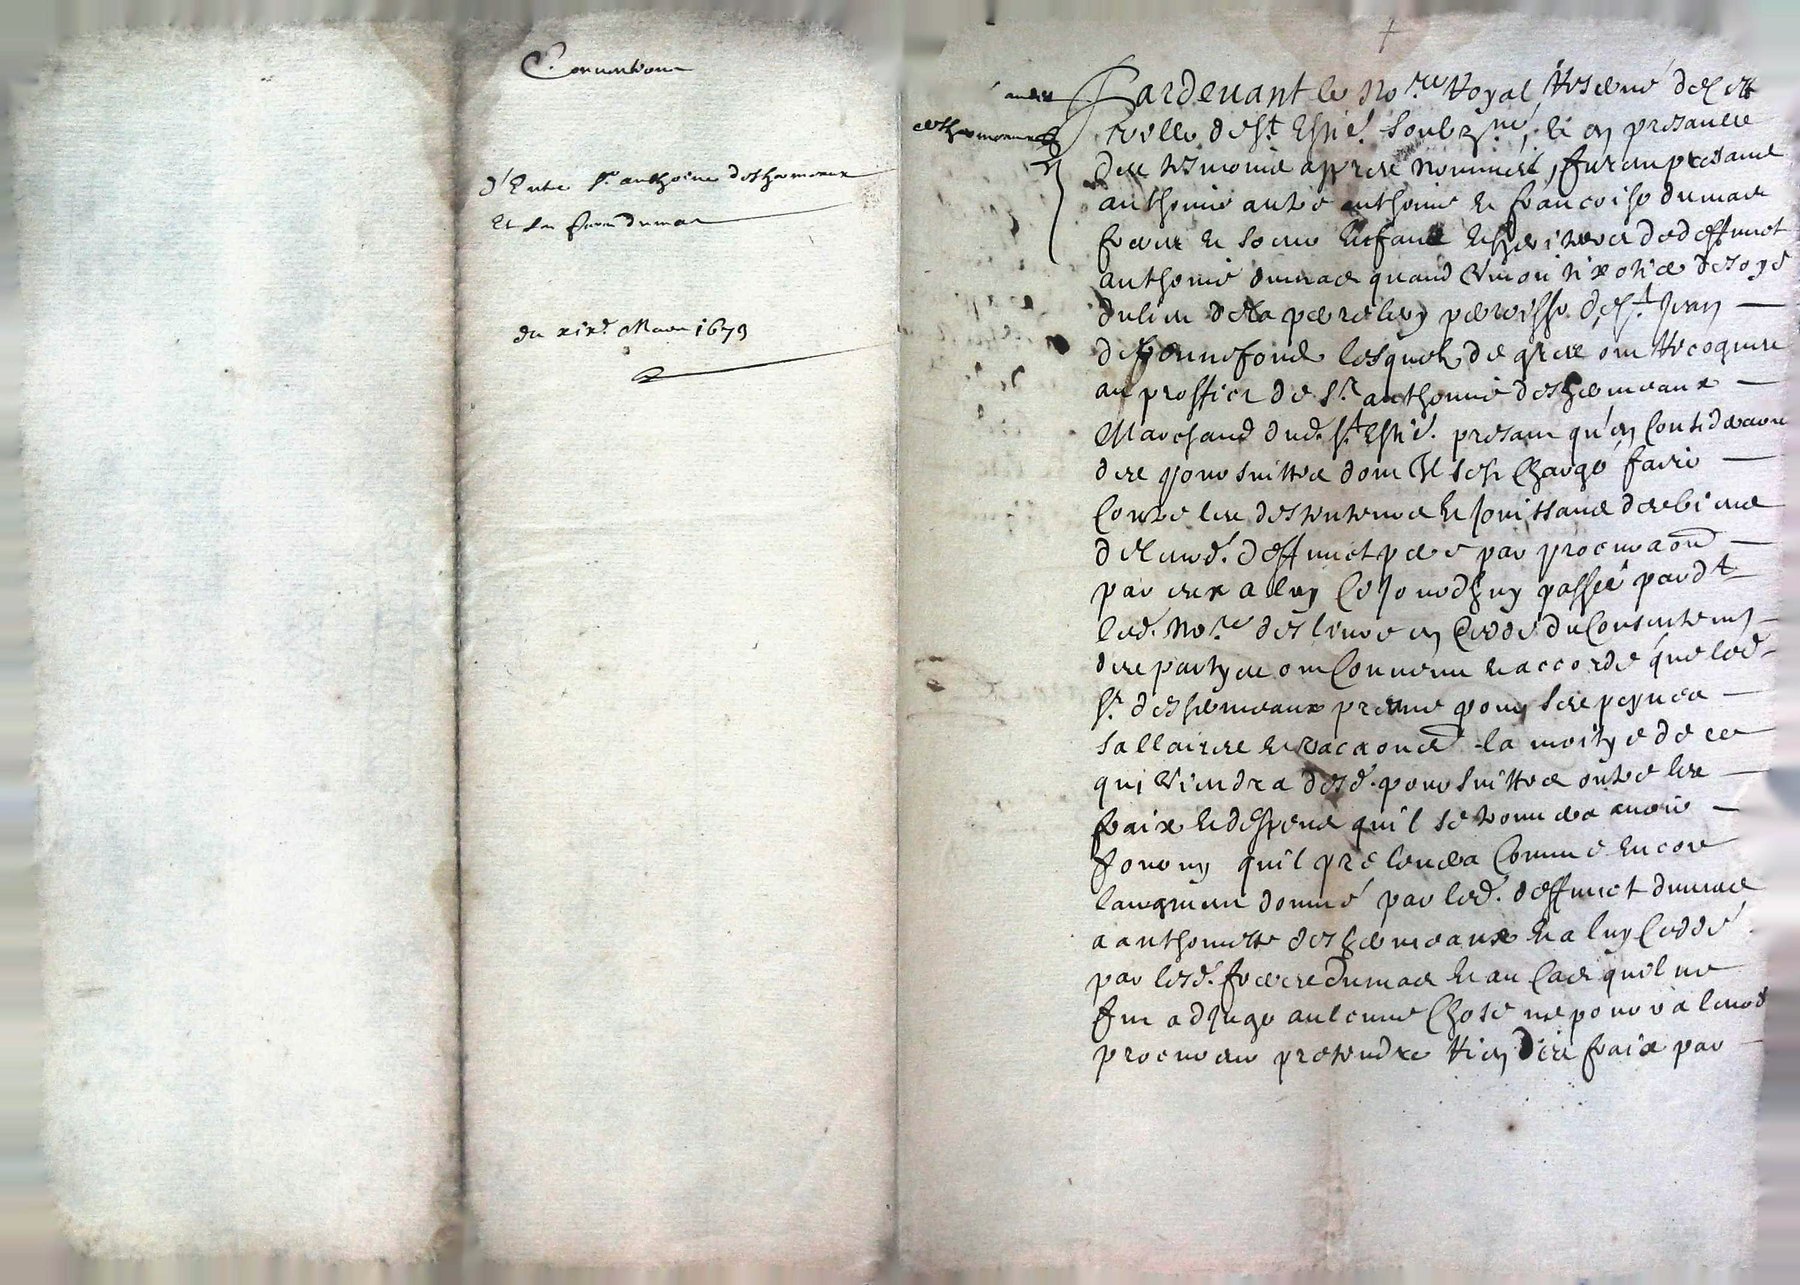 Conventions
d'Entre Sr. anthoine deshormeaux
Et les frere dumas
du xixe. Mars 1679
Pardevant le No.re Royal Reservé de cette
ville de St. Estie. soubzne. & en presance
des tesmoins appres nommés, furent presans
anthoine autre anthoine et francoise dumas
freres et soeur enfans et heritiers de deffunct
anthoine dumas quand vivoit
du lieu de la paroisse de St. Jean
de bonnefond lesquels de gres ont recogneu
au proffict de Sr. anthoine deshormeaux
Marchand dud. St. Estie. presant qu'en consideraon
des poursuittes dont Il sest chargé faire
Contre les destenteurs et Jouissans des biens
de leurd. deffunct pere par procuraon
par eux a luy Ce Jourdhuy passée pardt
led. No.re deslivrée en Cedde du Consentement
des partyes ont Convenu et accordé que led.
Sr. deshormeaux prenne pour ses peynes
sallaires et vacaons la moityé de ce
qui Viendra desd. poursuittes outre les
fraix et despens qu'il se trouvera avoir
fourny qu'il prelevera Comme encore
l'augment donné par led. deffunct dumas
a anthoinette deshormeaux et a luy Ceddé
par lesd. freres dumas et au Cas qu'il ne
fut adjugé aulcune Chose ne pourra leurd
procureur pretendre Rien des fraix par